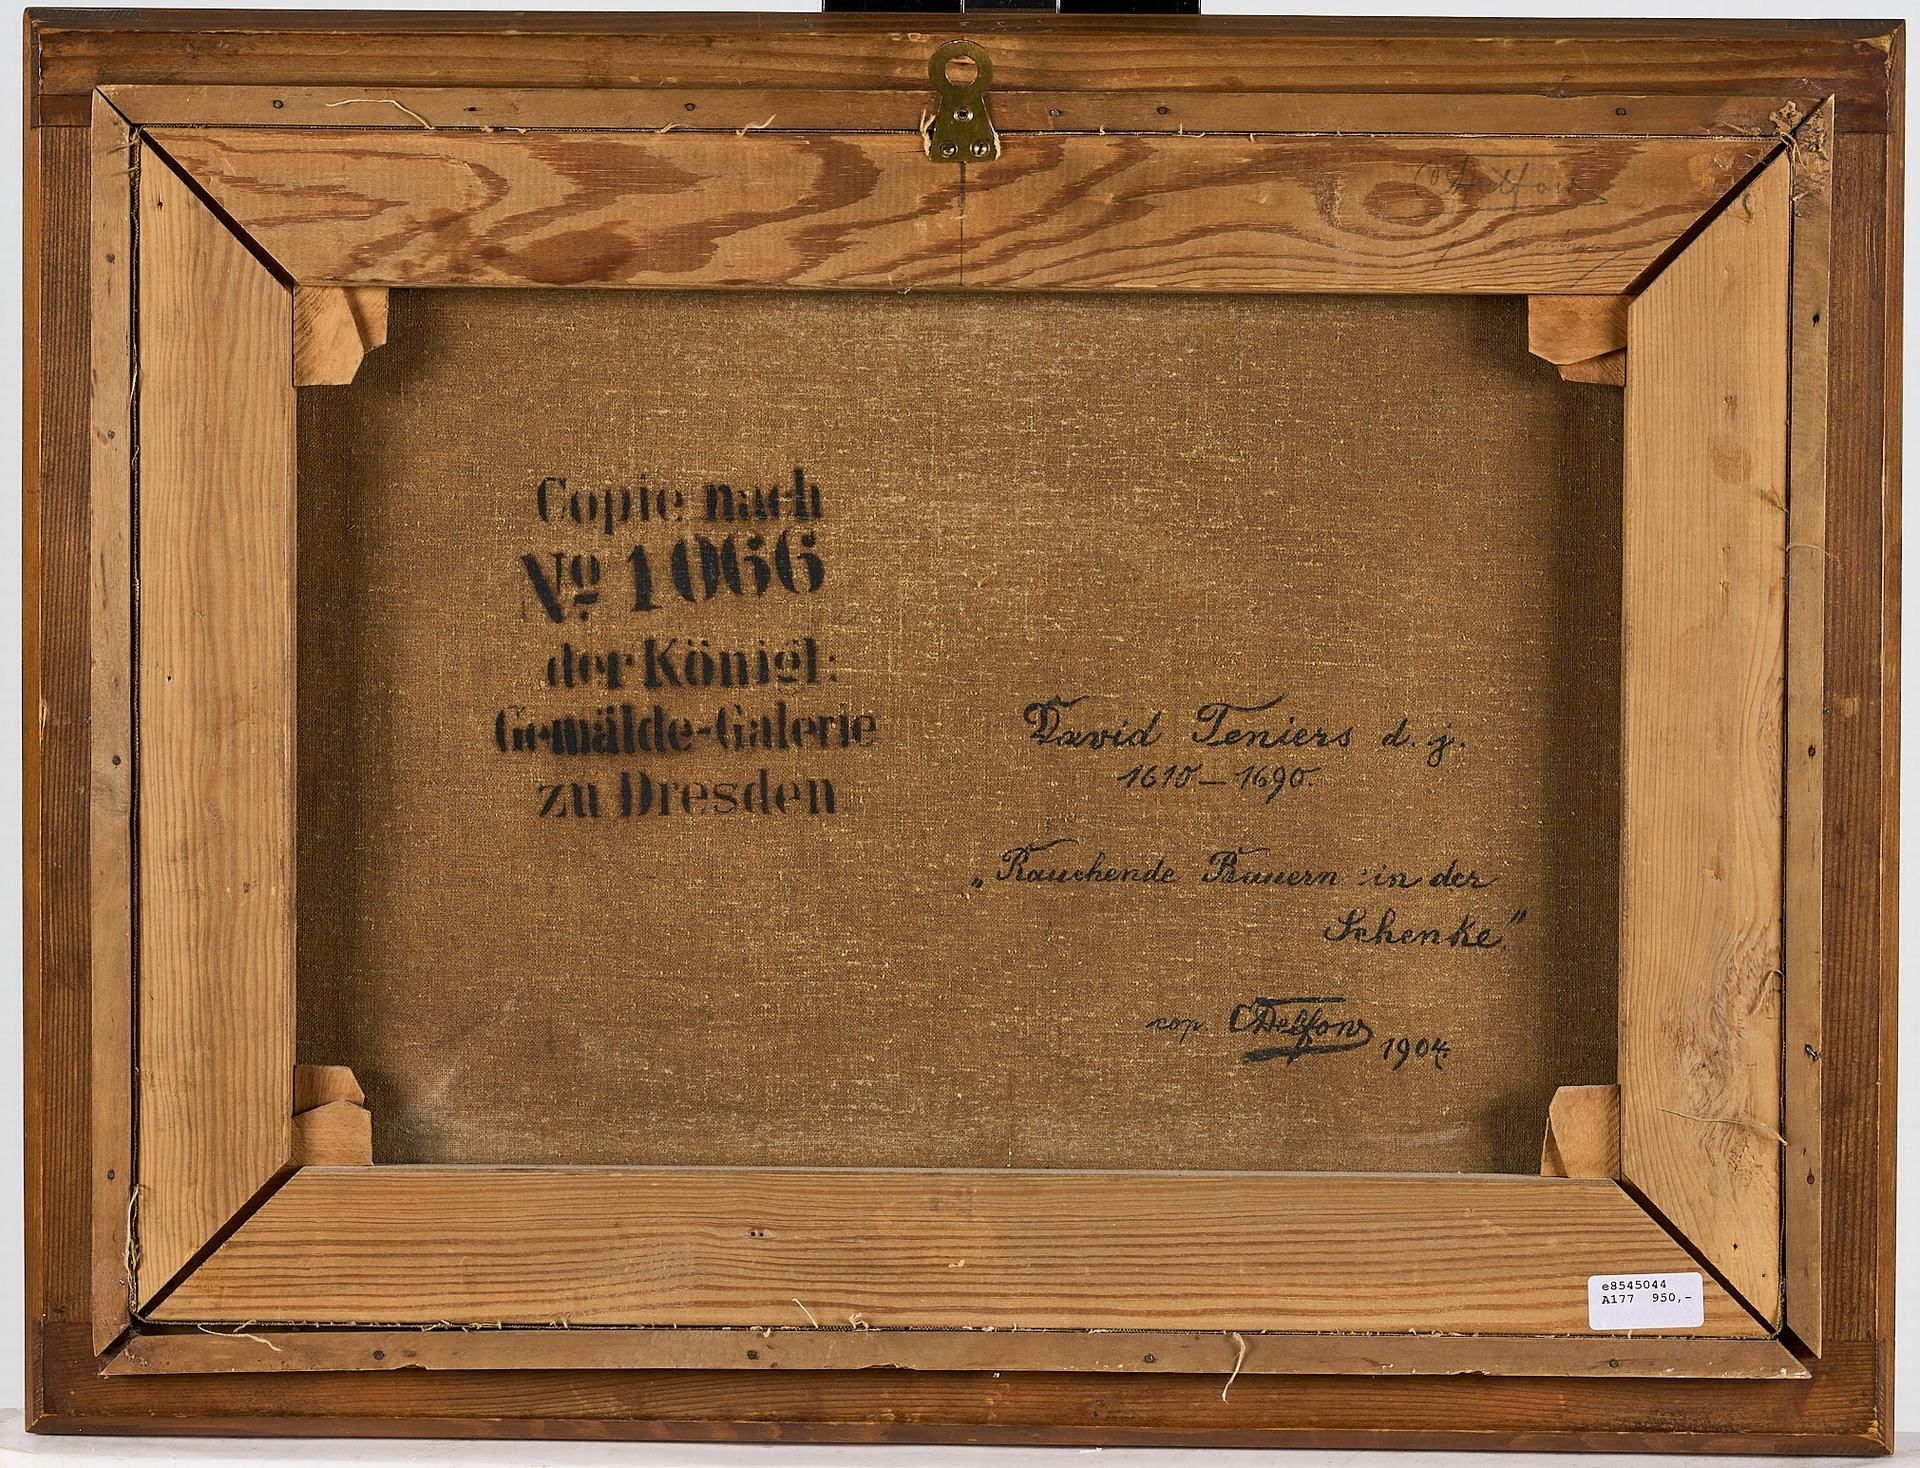 Copie nach
No 1066
der Königl:
Gemälde-Galerie
zu Dresden
David Teniers d. j.
1610 – 1690.
„Rauchende Bauern in der
Schenke."
cop. 1904.
e8545044
A177 950,-